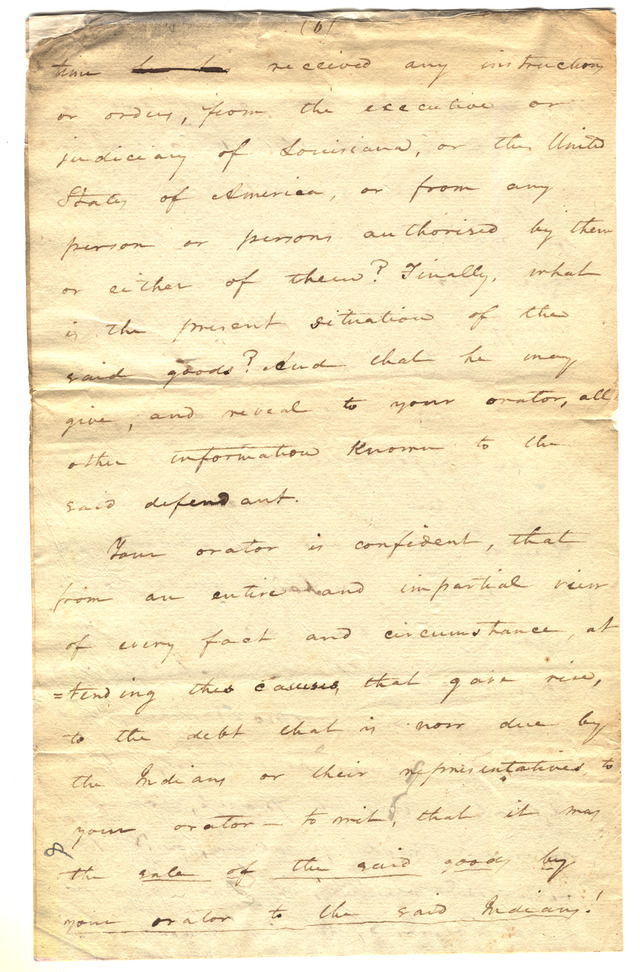 (6)
time received any instructions
or orders, from the executive or
judiciary of Louisiana, or the United
States of America, or from any
person or persons authorised by them
or either of them? Finally, what
is the present situation of the
said goods? And that he may
give, and reveal to your orator, all
other information known to the
said defendant.
Your orator is confident, that
from an entire and impartial view
of every fact and circumstance, at
=tending the causes, that gave rise,
to the debt that is now due by
the Indians or their representatives to
your orator — to wit, that it was
8
the sale of the said goods by
your orator to the said Indians!